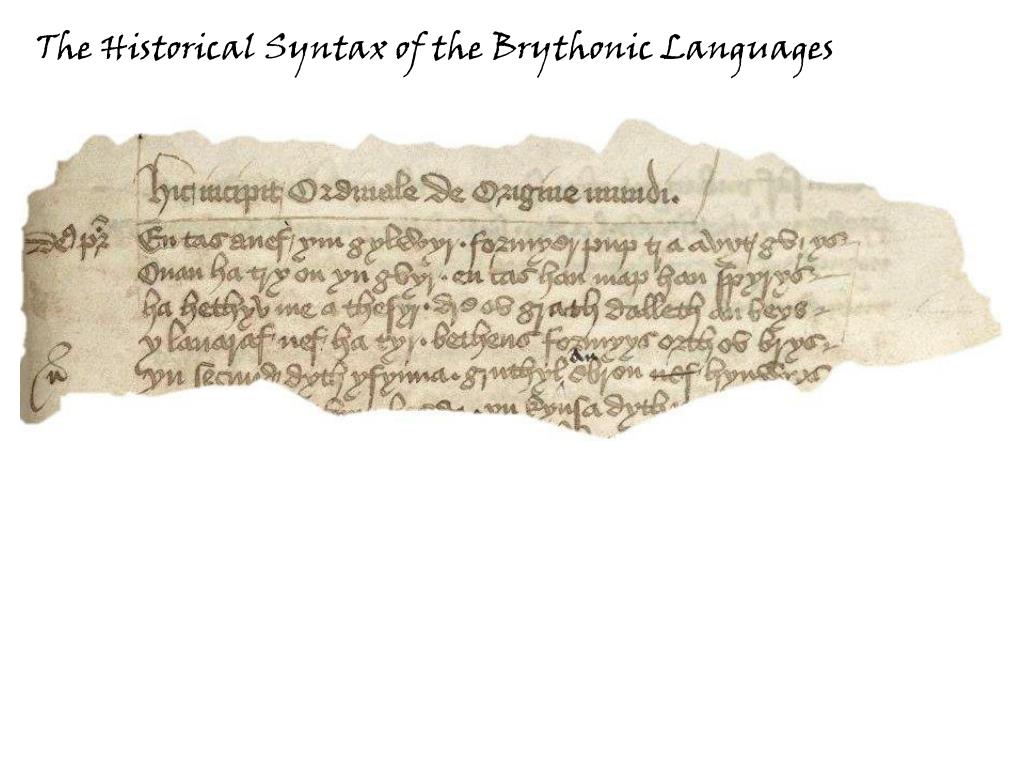 The Historical Syntax of the Brythonic Languages
Hic incipit Ordinale de Origine mundi.
En tas a nef ym gylwyr. formyer pup tra a vyt gvrys
Onan ha try on yn gvyr. en tas han map han spyrys
ha hethyv me a thesyr. dre ov grath dalleth an beys
y lavaraf nef ha tyr. bethens formyys orth ov brys
yn secund dyth y fynna. gruthyl an ebron nef hynwys
yn kynsa dyth